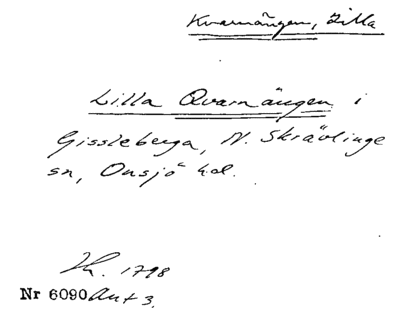 Kvarnängen, Lilla
Lilla Qvarnängen i
Gissleberga, N. Skrävlinge
sn, Onsjö hd.
Lh. 1798
Nr 6090 Ant 3.